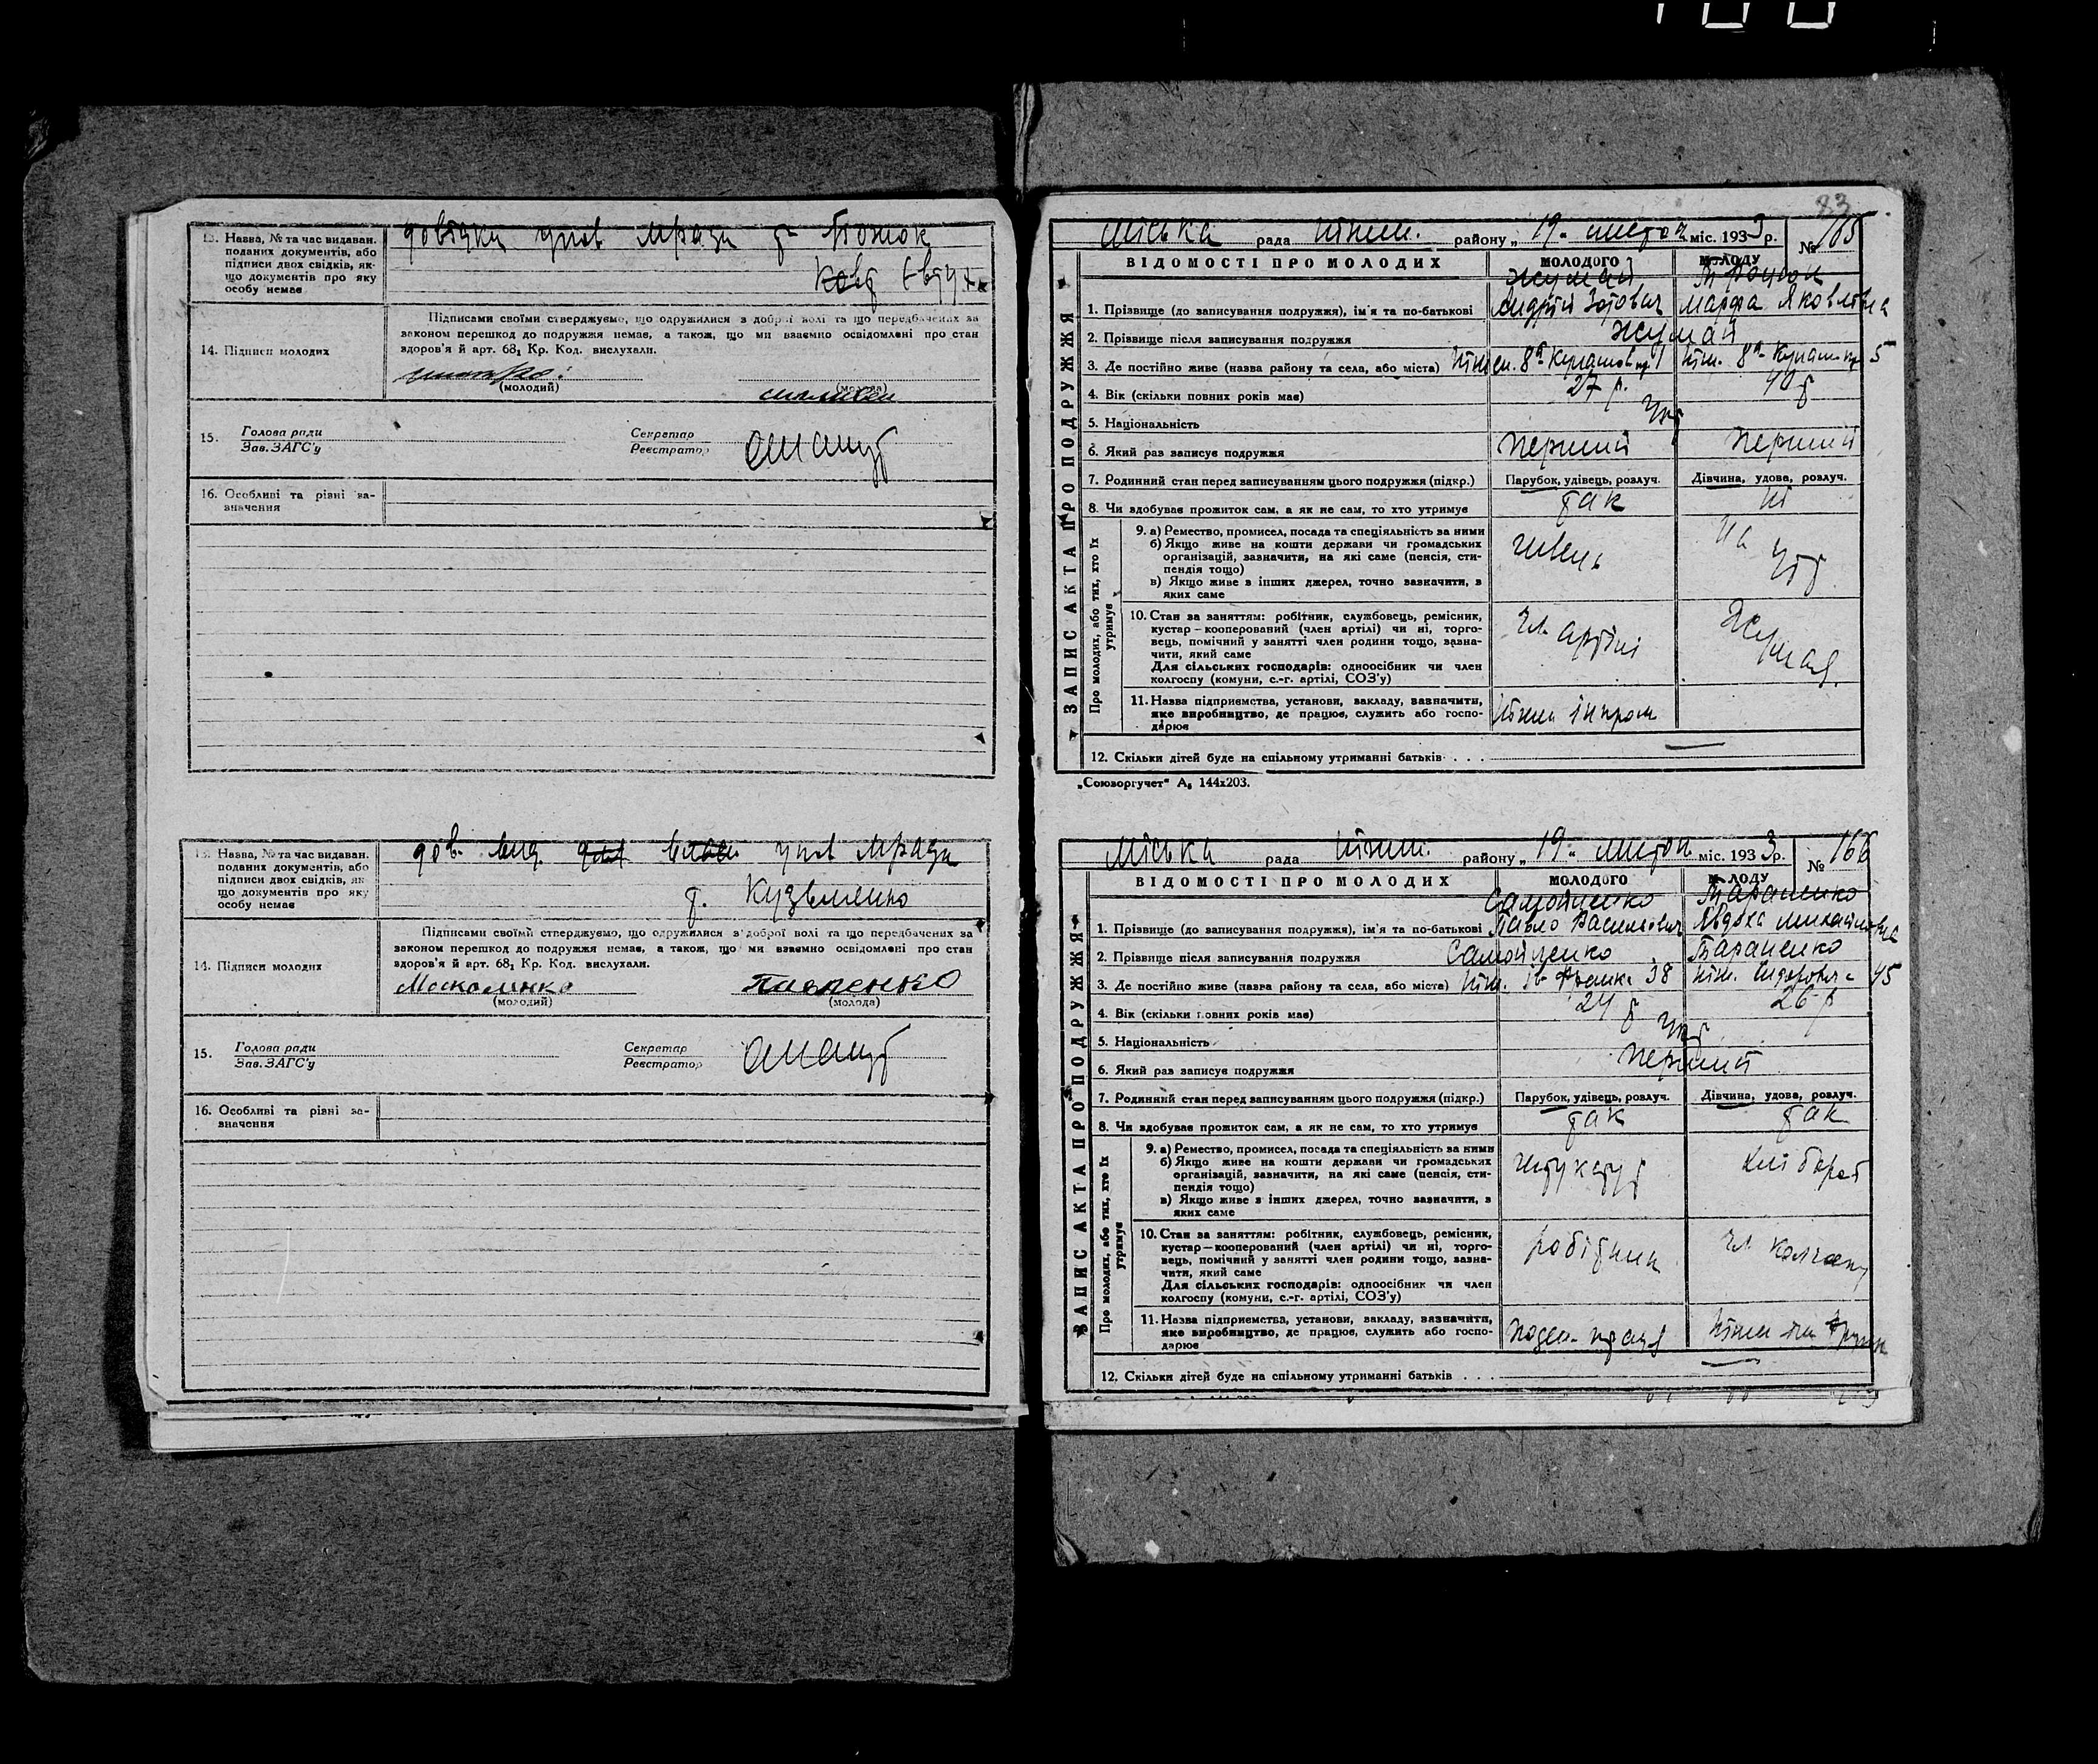 13. Назва, № та час видаван.
поданих документів, або
підписи двох свідків, як-
що документів про яку
особу немає
довідки упов мради
14. Підписи молодих
Підписами своїми стверджуємо, що одружилися з доброї волі та що передбачених за
законом перешкод до подружжя немає, а також, що ми взаємно освідомлені про стан
здоров'я й арт. 68₁ Кр. Код. вислухали.
(молодий)
(молода)
15. Голова ради
Зав. ЗАГС'у
Секретар
Реєстратор
16. Особливі та рівні за-
значення
13. Назва, № та час видаван.
поданих документів, або
підписи двох свідків, як-
що документів про яку
особу немає
дов. упов мради
т. Кузьменко
14. Підписи молодих
Підписами своїми стверджуємо, що одружилися з доброї волі та що передбачених за
законом перешкод до подружжя немає, а також, що ми взаємно освідомлені про стан
здоров'я й арт. 68₁ Кр. Код. вислухали.
Москаленко
(молодий)
Павленко
(молода)
15. Голова ради
Зав. ЗАГС'у
Секретар
Реєстратор
16. Особливі та рівні за-
значення
83
Міська рада Ніжин. району „19" листоп міс. 1933 р. № 165
ЗАПИС АКТА ПРО ПОДРУЖЖЯ
ВІДОМОСТІ ПРО МОЛОДИХ
МОЛОДОГО
МОЛОДУ
1. Прізвище (до записування подружжя), ім'я та по-батькові
Жумай
Андрій Зотович
Марфа Яковлівна
2. Прізвище після записування подружжя
Жумай
3. Де постійно живе (назва району та села, або міста)
4. Вік (скільки повних років має)
27 р.
5. Національність
Укр
6. Який раз записує подружжя
перший
перший
7. Родинний стан перед записуванням цього подружжя (підкр.)
Парубок, удівець, розлуч.
Дівчина, удова, розлуч.
8. Чи здобуває прожиток сам, а як не сам, то хто утримує
так
ні
Про молодих, або тих, хто їх утримує
9. а) Ремество, промисел, посада та спеціяльність за ними
б) Якщо живе на кошти держави чи громадських
організацій, зазначити, на які саме (пенсія, сти-
пендія тощо)
в) Якщо живе з інших джерел, точно зазначити, з
яких саме
швець
на утр.
10. Стан за заняттям: робітник, службовець, ремісник,
кустар – кооперований (член артілі) чи ні, торго-
вець, помічний у занятті член родини тощо, зазна-
чити, який саме
Для сільських господарів: одноосібник чи член
колгоспу (комуни, с.-г. артілі, СОЗ'у)
чл. артілі
11. Назва підприємства, установи, закладу, зазначити,
яке виробництво, де працює, служить або госпо-
дарює
12. Скільки дітей буде на спільному утриманні батьків . . .
„Союзоргучет" А₅ 144х203.
Міська рада Ніжин. району „19" листоп міс. 1933 р. № 166
ЗАПИС АКТА ПРО ПОДРУЖЖЯ
ВІДОМОСТІ ПРО МОЛОДИХ
МОЛОДОГО
МОЛОДУ
1. Прізвище (до записування подружжя), ім'я та по-батькові
Самойленко
Павло Васильович
Тараненко
Явдоха Михайлівна
2. Прізвище після записування подружжя
Самойленко
Тараненко
3. Де постійно живе (назва району та села, або міста)
Ніж. Ів Франка 38
45
4. Вік (скільки повних років має)
24 р
26 р
5. Національність
Укр
6. Який раз записує подружжя
перший
7. Родинний стан перед записуванням цього подружжя (підкр.)
Парубок, удівець, розлуч.
Дівчина, удова, розлуч.
8. Чи здобуває прожиток сам, а як не сам, то хто утримує
так
так
Про молодих, або тих, хто їх утримує
9. а) Ремество, промисел, посада та спеціяльність за ними
б) Якщо живе на кошти держави чи громадських
організацій, зазначити, на які саме (пенсія, сти-
пендія тощо)
в) Якщо живе з інших джерел, точно зазначити, з
яких саме
штукатур
хлібороб
10. Стан за заняттям: робітник, службовець, ремісник,
кустар – кооперований (член артілі) чи ні, торго-
вець, помічний у занятті член родини тощо, зазна-
чити, який саме
Для сільських господарів: одноосібник чи член
колгоспу (комуни, с.-г. артілі, СОЗ'у)
робітник
чл колгоспу
11. Назва підприємства, установи, закладу, зазначити,
яке виробництво, де працює, служить або госпо-
дарює
12. Скільки дітей буде на спільному утриманні батьків . . .